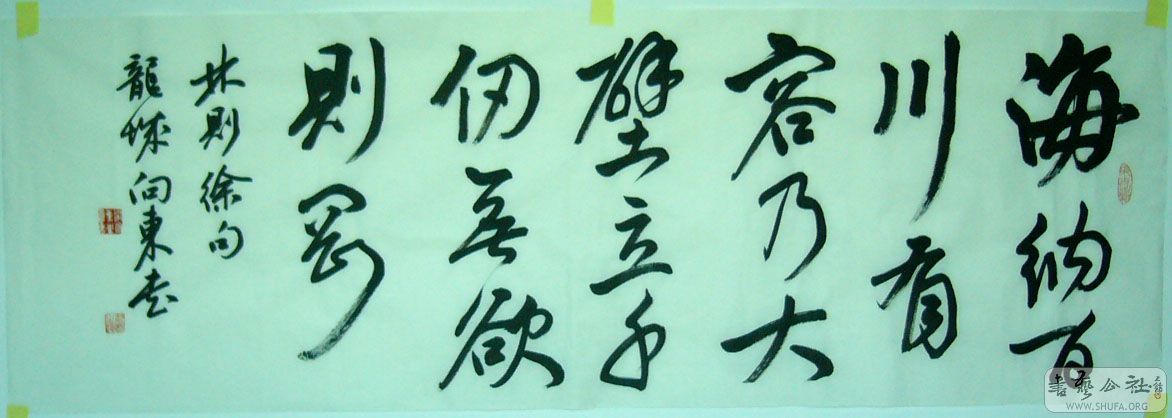 海納百
川有
容乃大
壁立千
仞無欲
則剛
林則徐句
龍城向東書
書藝公社
WWW.SHUFA.ORG